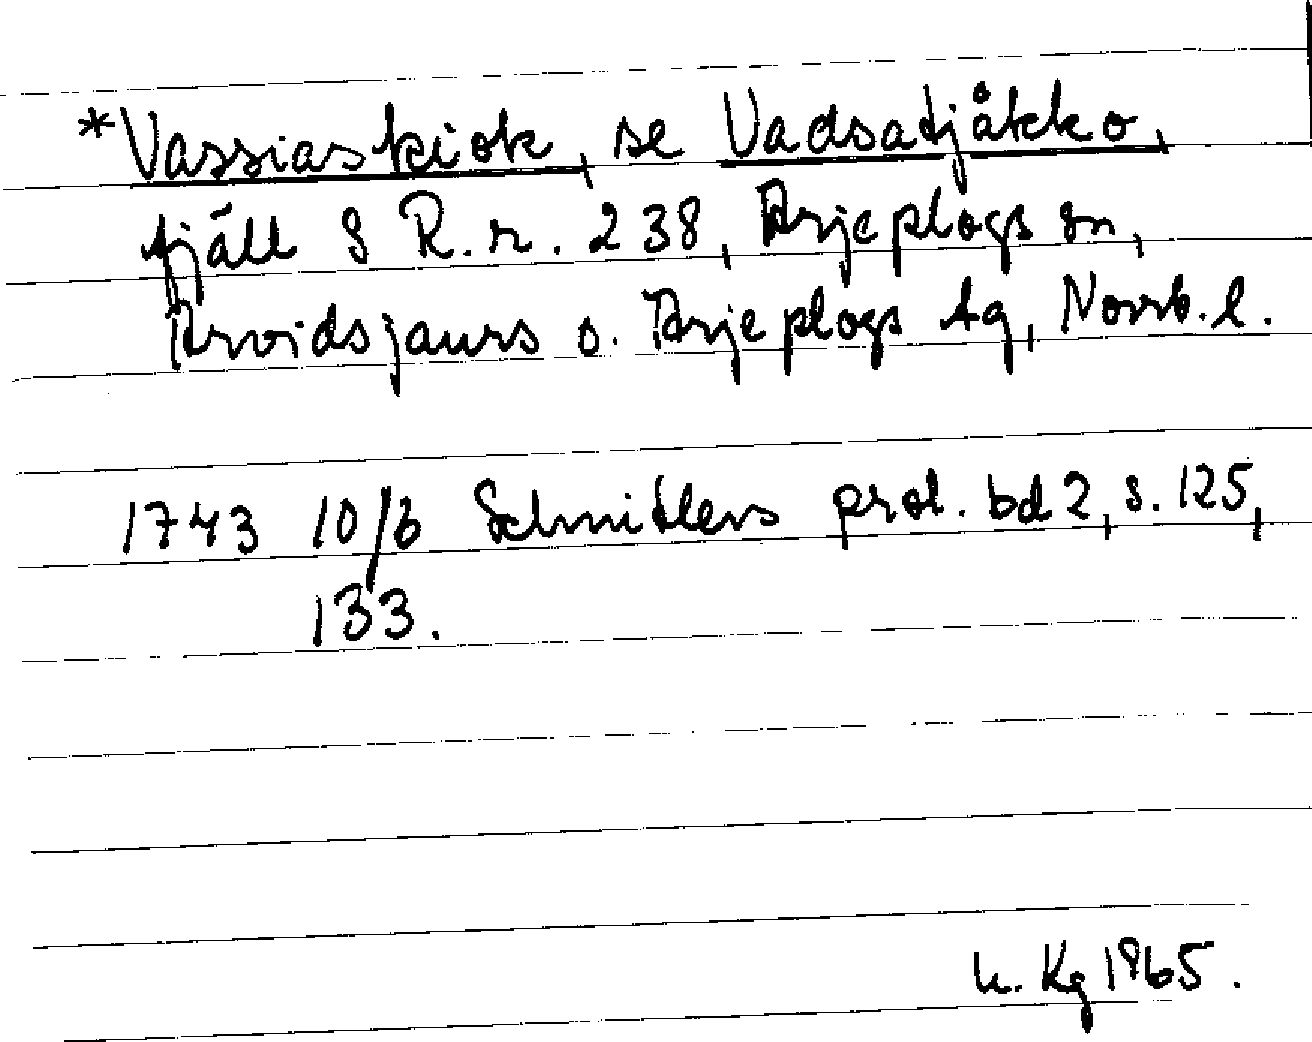 *Vassiaskiok, se Vadsatjåkko,
fjäll S R.r. 238, Arjeplogs sn,
Arvidsjaurs o. Arjeplogs tg, Norrb. l.
1743 10/6 Schnitlers prot. bd 2, s. 125,
133.
h. Kg 1965.